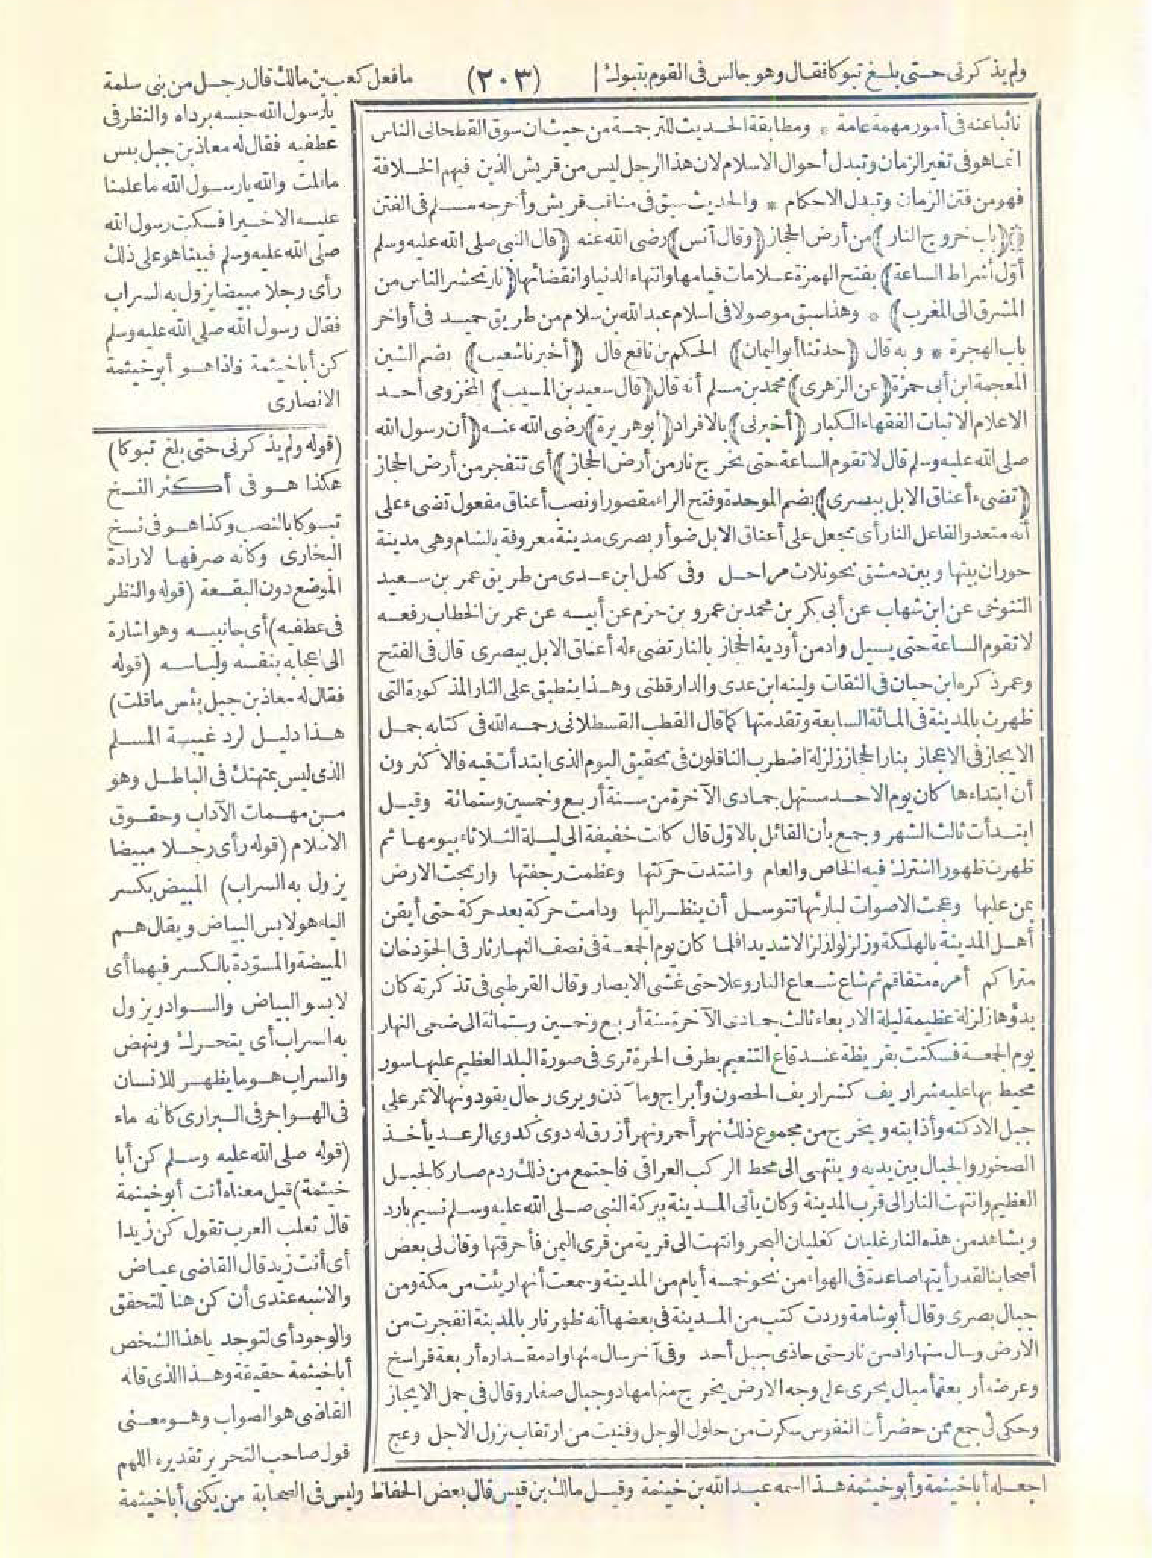 ولم يذكرنى حتى بلغ تبوكا فقال وهو جالس فى القوم بتبوك
(٢٠٣)
مافعل كعب بن مالك قال رجل من بنى سلمة
يارسول الله حبسه برداه والنظر فى
عطفيه فقال له معاذ بن جبل بئس
ماقلت والله يارسول الله ماعلمنا
عليه الاخيرا فسكت رسول الله
صلى الله عليه وسلم فبينما هو على ذلك
رأى رجلا مبيضا يزول به السراب
فقال رسول الله صلى الله عليه وسلم
كن أباخيثمة فاذا هو أبو خيثمة
الانصارى
نائبا عنه فى أمور مهمة عامة * ومطابقة الحديث للترجمة من حيث ان سوق القحطانى الناس
انما هو فى تغير الزمان وتبدل أحوال الاسلام لان هذا الرجل ليس من قريش الذين فيهم الخلافة
فهو من فتن الزمان وتبدل الاحكام * والحديث سبق فى مناقب قريش وأخرجه مسلم فى الفتن
(باب خروج النار) من أرض الحجاز (وقال أنس) رضى الله عنه (قال النبى صلى الله عليه وسلم
أول أشراط الساعة) بفتح الهمزة علامات قيامها وانتهاء الدنيا وانقضائها (نار تحشر الناس من
المشرق الى المغرب) * وهذا سبق موصولا فى اسلام عبد الله بن سلام من طريق حميد فى أواخر
باب الهجرة * وبه قال (حدثنا أبو اليمان) الحكم بن نافع قال (أخبرنا شعيب) بضم الشين
المعجمة ابن أبى حمزة (عن الزهرى) محمد بن مسلم أنه قال (قال سعيد بن المسيب) المخزومى أحد
الاعلام الاثبات الفقهاء الكبار (أخبرنى) بالافراد (أبو هريرة) رضى الله عنه (أن رسول الله
صلى الله عليه وسلم قال لا تقوم الساعة حتى تخرج نار من أرض الحجاز) أى تتفجر من أرض الحجاز
(تضىء أعناق الابل ببصرى) بضم الموحدة وفتح الراء مقصورا ونصب أعناق مفعول تضىء على
أنه متعد والفاعل النار أى تجعل على أعناق الابل ضوأ وبصرى مدينة معروفة بالشام وهى مدينة
حوران بينها وبين دمشق نحو ثلاث مراحل وفى كامل ابن عدى من طريق عمر بن سعيد
التنوخى عن ابن شهاب عن أبى بكر بن محمد بن عمرو بن حزم عن أبيه عن عمر بن الخطاب رفعه
لا تقوم الساعة حتى يسيل وادمن أودية الحجاز بالنار تضىء له أعناق الابل ببصرى قال فى الفتح
وعمر ذكره ابن حبان فى الثقات ولينه ابن عدى والدارقطنى وهذا ينطبق على النار المذكورة التى
ظهرت بالمدينة فى المائة السابعة وتقدمتها كما قال القطب القسطلانى رحمه الله فى كتابه جمل
الايجاز فى الاعجاز بنار الحجاز زلزلة اضطرب الناقلون فى تحقيق اليوم الذى ابتدأت فيه فالاكثرون
أن ابتداءها كان يوم الاحد مستهل جمادى الآخرة من سنة أربع وخمسين وستمائة وقيل
ابتدأت ثالث الشهر وجمع بأن القائل بالاول قال كانت خفيفة الى ليلة الثلاثاء بيومها ثم
ظهرت ظهورا اشترك فيه الخاص والعام واشتدت حركتها وعظمت رجفتها وارتجت الارض
بمن عليها وعجت الاصوات لبارئها تتوسل أن ينظر اليها ودامت حركة بعد حركة حتى أيقن
أهل المدينة بالهلكة وزلزلوا زلزالا شديدا فلما كان يوم الجمعة فى نصف النهار ثار فى الجو دخان
متراكم أمره متفاقم ثم شاع شعاع النار وعلا حتى غشى الابصار وقال القرطبى فى تذكرته كان
بدؤها زلزلة عظيمة ليلة الاربعاء ثالث جمادى الآخرة سنة أربع وخمسين وستمائة الى ضحى النهار
يوم الجمعة فسكنت بقريظة عند قاع التنعيم بطرف الحرة ترى فى صورة البلد العظيم عليها سور
محيط بها عليه شراريف كشراريف الحصون وأبراج ومآذن ويرى رجال يقودونها لا تمر على
جبل الا دكته وأذابته ويخرج من مجموع ذلك نهر أحمر ونهر أزرق له دوى كدوى الرعد يأخذ
الصخور والجبال بين يديه وينتهى الى محط الركب العراقى فاجتمع من ذلك ردم صار كالجبل
العظيم وانتهت النار الى قرب المدينة وكان يأتى المدينة ببركة النبى صلى الله عليه وسلم نسيم بارد
ويشاهد من هذه النار غليان كغليان البحر وانتهت الى قرية من قرى اليمن فأحرقتها وقال لى بعض
أصحابنا لقد رأيتها صاعدة فى الهواء من نحو خمسة أيام من المدينة وسمعت أنها رئيت من مكة ومن
جبال بصرى وقال أبو شامة وردت كتب من المدينة فى بعضها أنه ظهر نار بالمدينة انفجرت من
الارض وسال منها وادمن نار حتى حاذى جبل أحد وفى آخر سال منها واد مقداره أربعة فراسخ
وعرضه أربعة أميال يجرى على وجه الارض يخرج منها مهاد وجبال صغار وقال فى جمل الايجاز
وحكى لى جمع ممن حضر أن النفوس سكرت من حلول الوجل وفنيت من ارتقاب نزول الاجل وعج
(قوله ولم يذكرنى حتى بلغ تبوكا)
هكذا هو فى أكثر النسخ
تبوكا بالنصب وكذا هو فى نسخ
البخارى وكأنه صرفها لارادة
الموضع دون البقعة (قوله والنظر
فى عطفيه) أى جانبيه وهو اشارة
الى اعجابه بنفسه ولباسه (قوله
فقال له معاذ بن جبل بئس ماقلت)
هذا دليل لرد غيبة المسلم
الذى ليس بمتهتك فى الباطل وهو
من مهمات الآداب وحقوق
الاسلام (قوله رأى رجلا مبيضا
يزول به السراب) المبيض بكسر
الياء هو لابس البياض ويقال هم
المبيضة والمسودة بالكسر فيهما أى
لابسو البياض والسواد ويزول
به السراب أى يتحرك وينهض
والسراب هو ما يظهر للانسان
فى الهواجر فى البرارى كأنه ماء
(قوله صلى الله عليه وسلم كن أبا
خيثمة) قيل معناه أنت أبو خيثمة
قال ثعلب العرب تقول كن زيدا
أى أنت زيد قال القاضى عياض
والاشبه عندى أن كن هنا للتحقق
والوجود أى لتوجد ياهذا الشخص
أباخيثمة حقيقة وهذا الذى قاله
القاضى هو الصواب وهو معنى
قول صاحب التحرير تقديره اللهم
اجعله أباخيثمة وأبو خيثمة هذا اسمه عبد الله بن خيثمة وقيل مالك بن قيس قال بعض الحفاظ وليس فى الصحابة من يكنى أباخيثمة